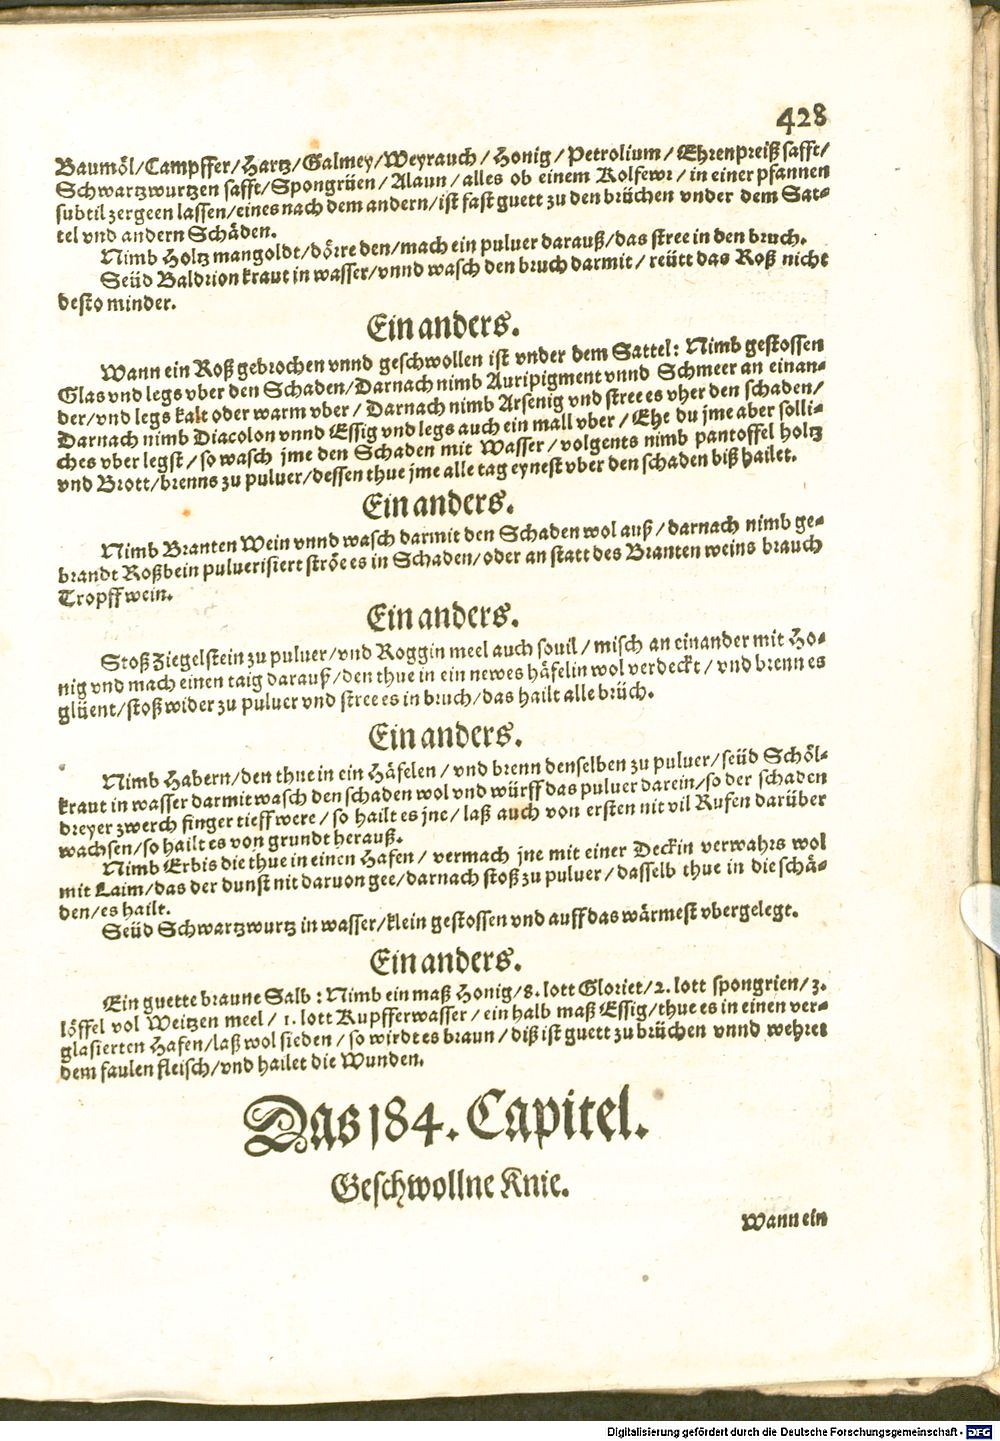 428
Baumöl/Campffer/Hartz/Galmey/Weyrauch/Honig/Petrolium/Ehrenpreiß safft/
Schwartzwurtzen safft/Spongrüen/Alaun/alles ob einem Kolfewr/in einer pfannen
subtil zergeen lassen/eines nach dem andern/ist fast guett zu den brüchen vnder dem Sat-
tel vnd andern Schäden.
Nimb Holtz mangoldt/dörre den/mach ein puluer darauß/das stree in den bruch.
Seüd Baldrion kraut in wasser/vnnd wasch den bruch darmit/reütt das Roß nicht
desto minder.
Ein anders.
Wann ein Roß gebrochen vnnd geschwollen ist vnder dem Sattel: Nimb gestossen
Glas vnd legs vber den Schaden/Darnach nimb Auripigment vnnd Schmeer an einan-
der/vnd legs kalt oder warm vber/Darnach nimb Arsenig vnd stree es vber den schaden/
Darnach nimb Diacolon vnnd Essig vnd legs auch ein mall vber/Ehe du jme aber solli-
ches vber legst/so wasch jme den Schaden mit Wasser/volgents nimb pantoffel holtz
vnd Brott/brenns zu puluer/dessen thue jme alle tag eynest vber den schaden biß hailet.
Ein anders.
Nimb Branten Wein vnnd wasch darmit den Schaden wol auß/darnach nimb ge-
brandt Roßbein puluerisiert ströe es in Schaden/oder an statt des Branten weins brauch
Tropffwein.
Ein anders.
Stoß Ziegelstein zu puluer/vnd Roggin meel auch souil/misch an einander mit Ho-
nig vnd mach einen taig darauß/den thue in ein newes häfelin wol verdeckt/vnd brenn es
glüent/stoß wider zu puluer vnd stree es in bruch/das hailt alle brüch.
Ein anders.
Nimb Habern/den thue in ein Häfelen/vnd brenn denselben zu puluer/seüd Schöl-
kraut in wasser darmit wasch den schaden wol vnd würff das puluer darein/so der schaden
dreyer zwerch finger tieff were/so hailt es jne/laß auch von ersten nit vil Rufen darüber
wachsen/so hailt es von grundt herauß.
Nimb Erbis die thue in einen Hafen/vermach jne mit einer Deckin verwahrs wol
mit Laim/das der dunst nit daruon gee/darnach stoß zu puluer/dasselb thue in die schä-
den/es hailt.
Seüd Schwartzwurtz in wasser/klein gestossen vnd auff das wärmest vbergelegt.
Ein anders.
Ein guette braune Salb: Nimb ein maß Honig/8. lott Gloriet/2. lott spongrien/3.
löffel vol Weitzen meel/1. lott Kupfferwasser/ein halb maß Essig/thue es in einen ver-
glasierten Hafen/laß wol sieden/so wirdt es braun/diß ist guett zu brüchen vnnd wehret
dem faulen fleisch/vnd hailet die Wunden.
Das 184. Capitel.
Geschwollne Knie.
Wann ein
Digitalisierung gefördert durch die Deutsche Forschungsgemeinschaft - DFG